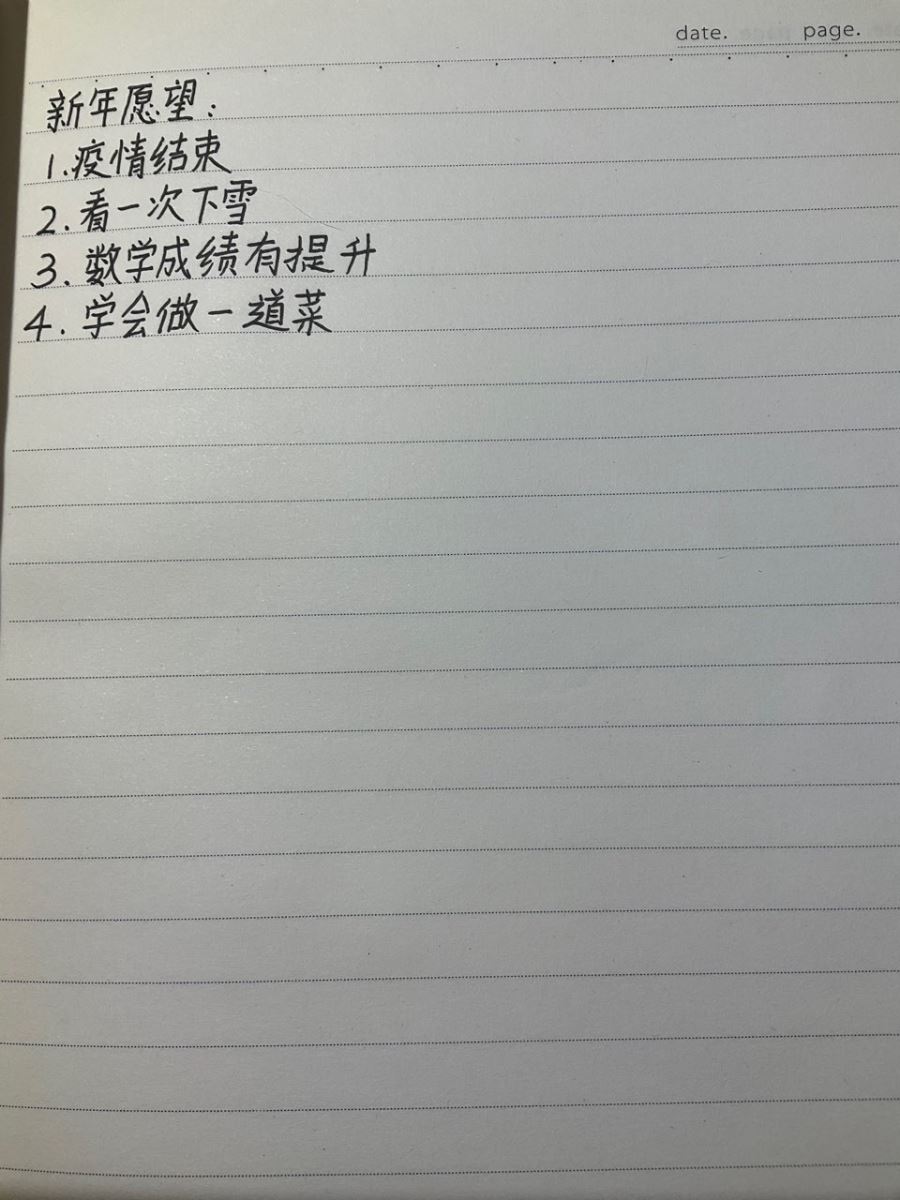 date. page.
新年愿望：
1.疫情结束
2.看一次下雪
3.数学成绩有提升
4.学会做一道菜